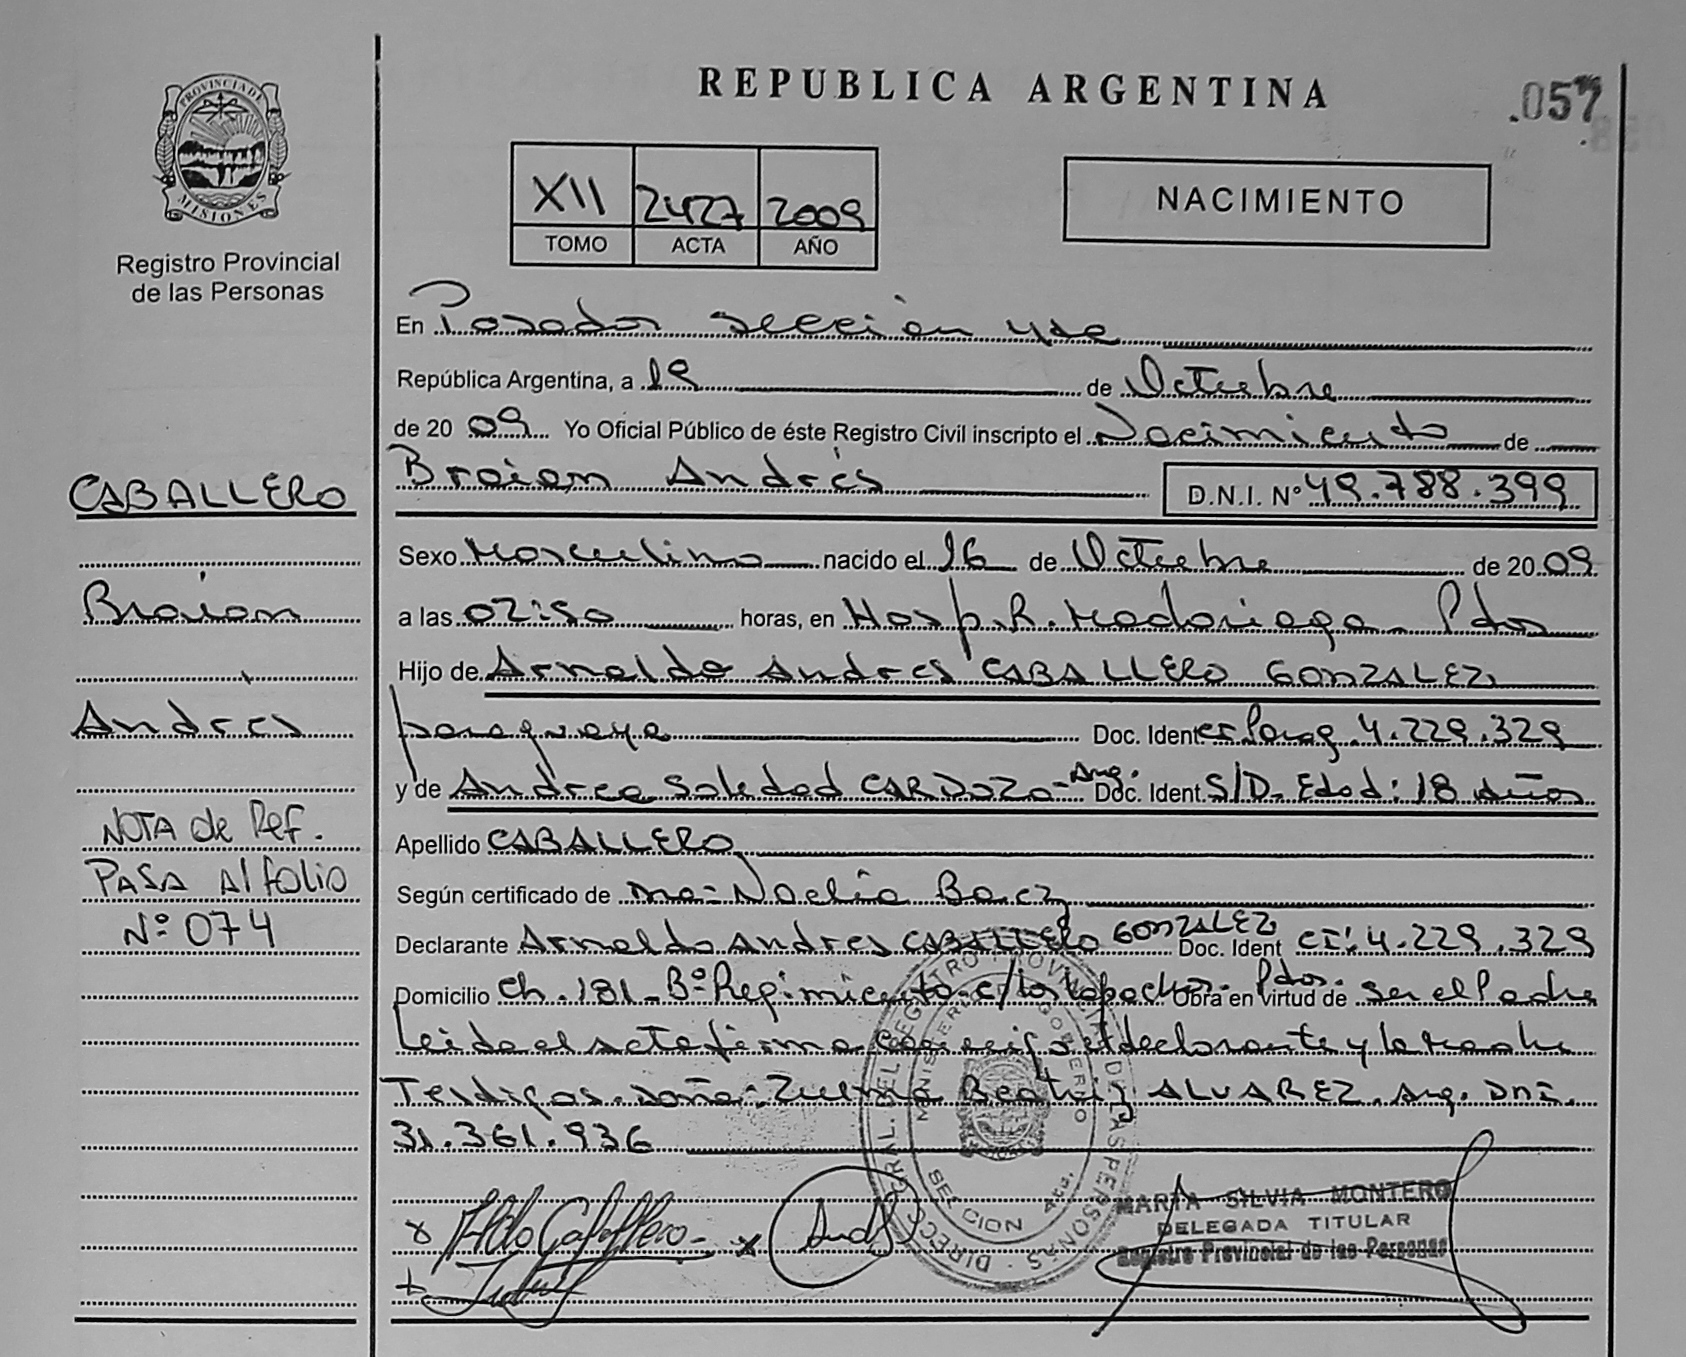 REPUBLICA ARGENTINA
.057
PROVINCIA DE
MISIONES
Registro Provincial
de las Personas
XII 2427 2009
TOMO ACTA AÑO
NACIMIENTO
En Posadas sección 4ta
República Argentina, a 19 de Octubre
de 2009 Yo Oficial Público de éste Registro Civil inscripto el Nacimiento de
Braian Andrés D.N.I. Nº 49.788.399
Sexo Masculino nacido el 16 de Octubre de 2009
a las 02:50 horas, en Hosp. R. Madariaga - Pdas
Hijo de Arnaldo Andres CABALLERO GONZALEZ
paraguaya Doc. Ident. CI Parag 4.229.329
y de Andrea Soledad CARDOZO - Arg. Doc. Ident. S/D - Edad: 18 Años
Apellido CABALLERO
Según certificado de Noelia Baez
Declarante Arnaldo Andres CABALLERO GONZALEZ Doc. Ident CI: 4.229.329
Domicilio Ch. 181 - Bº Regimiento - c/ los lapachos - Pdas. Obra en virtud de ser el Padre
Leida el acta firma conmigo el declarante y la Madre
Testigos. Doña: Zulma Beatriz ALVAREZ. Arg. DNI.
31.361.936
CABALLERO
Braian
Andres
NOTA de Ref.
PASA Al folio
Nº 074
DIRECC. GRAL. DEL REGISTRO PROVINCIAL DE LAS PERSONAS
MINISTERIO GOBIERNO
SECCION 4ta.
MARTA SILVIA MONTERO
DELEGADA TITULAR
Registro Provincial de las Personas